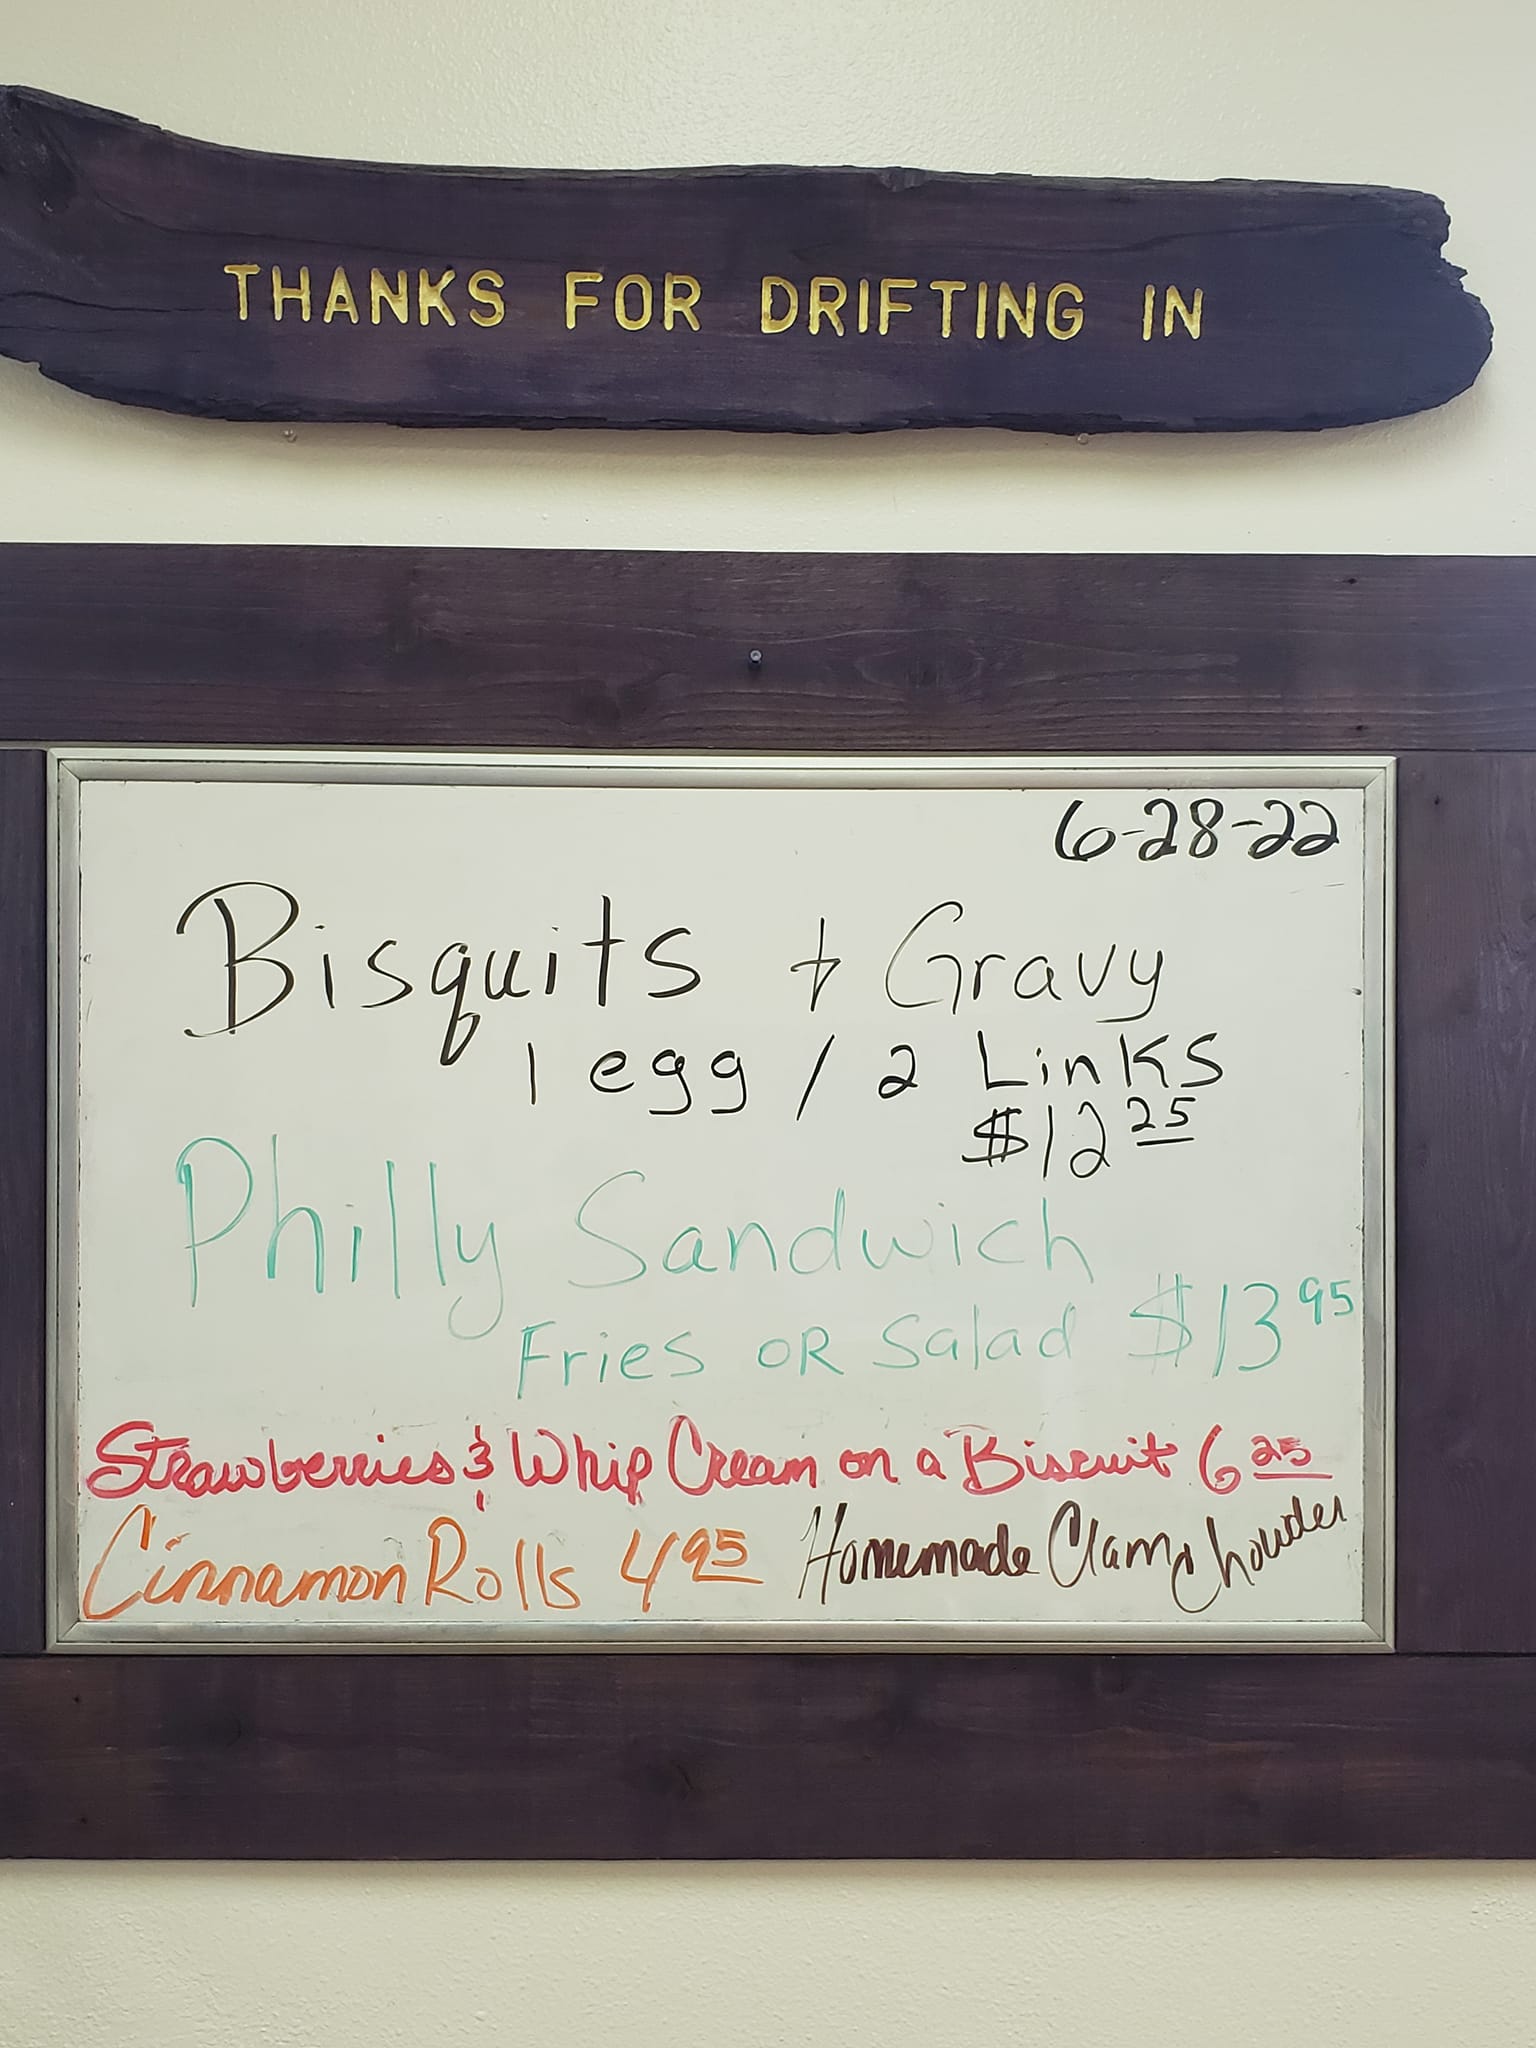 THANKS FOR DRIFTING IN
6-28-22
Bisquits + Gravy
1 egg / 2 Links
$12 25
Philly Sandwich
Fries OR Salad $13 95
Strawberries & Whip Cream on a Biscuit 6 25
Cinnamon Rolls 4 95 Homemade Clam Chowder